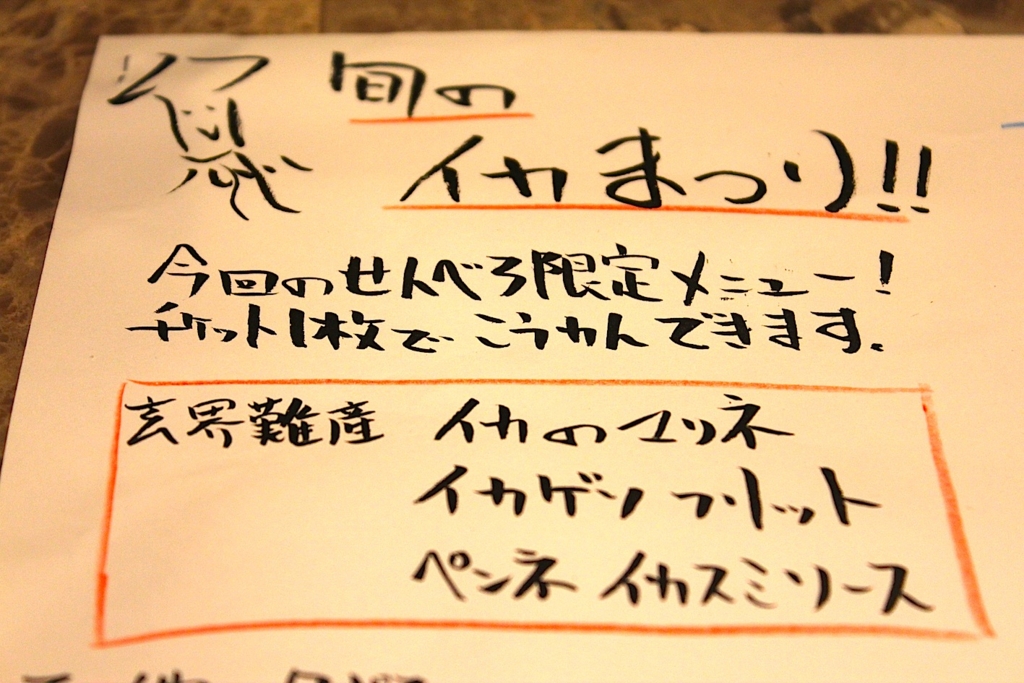 旬の
イカまつり!!
今回のせんべろ限定メニュー!
チケット1枚でこうかんできます。
玄界難産 イカのマリネ
イカゲソフリット
ペンネ イカスミソース